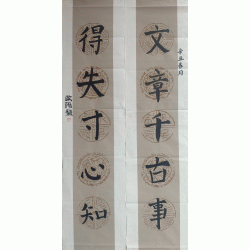 文章千古事
得失寸心知